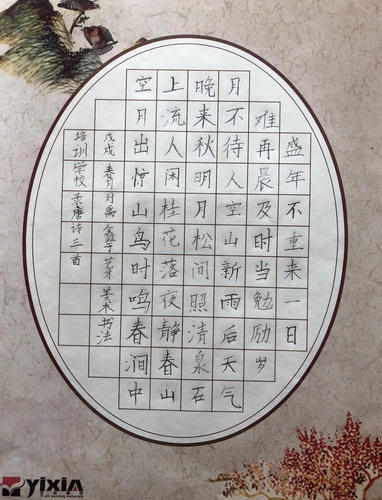 盛年不重来一日
难再晨及时当勉励岁
月不待人空山新雨后天气
晚来秋明月松间照清泉石
上流人闲桂花落夜静春山
空月出惊山鸟时鸣春涧中
戊戌春月刘禹 芽美术书法
培训学校录唐诗三首
yixin